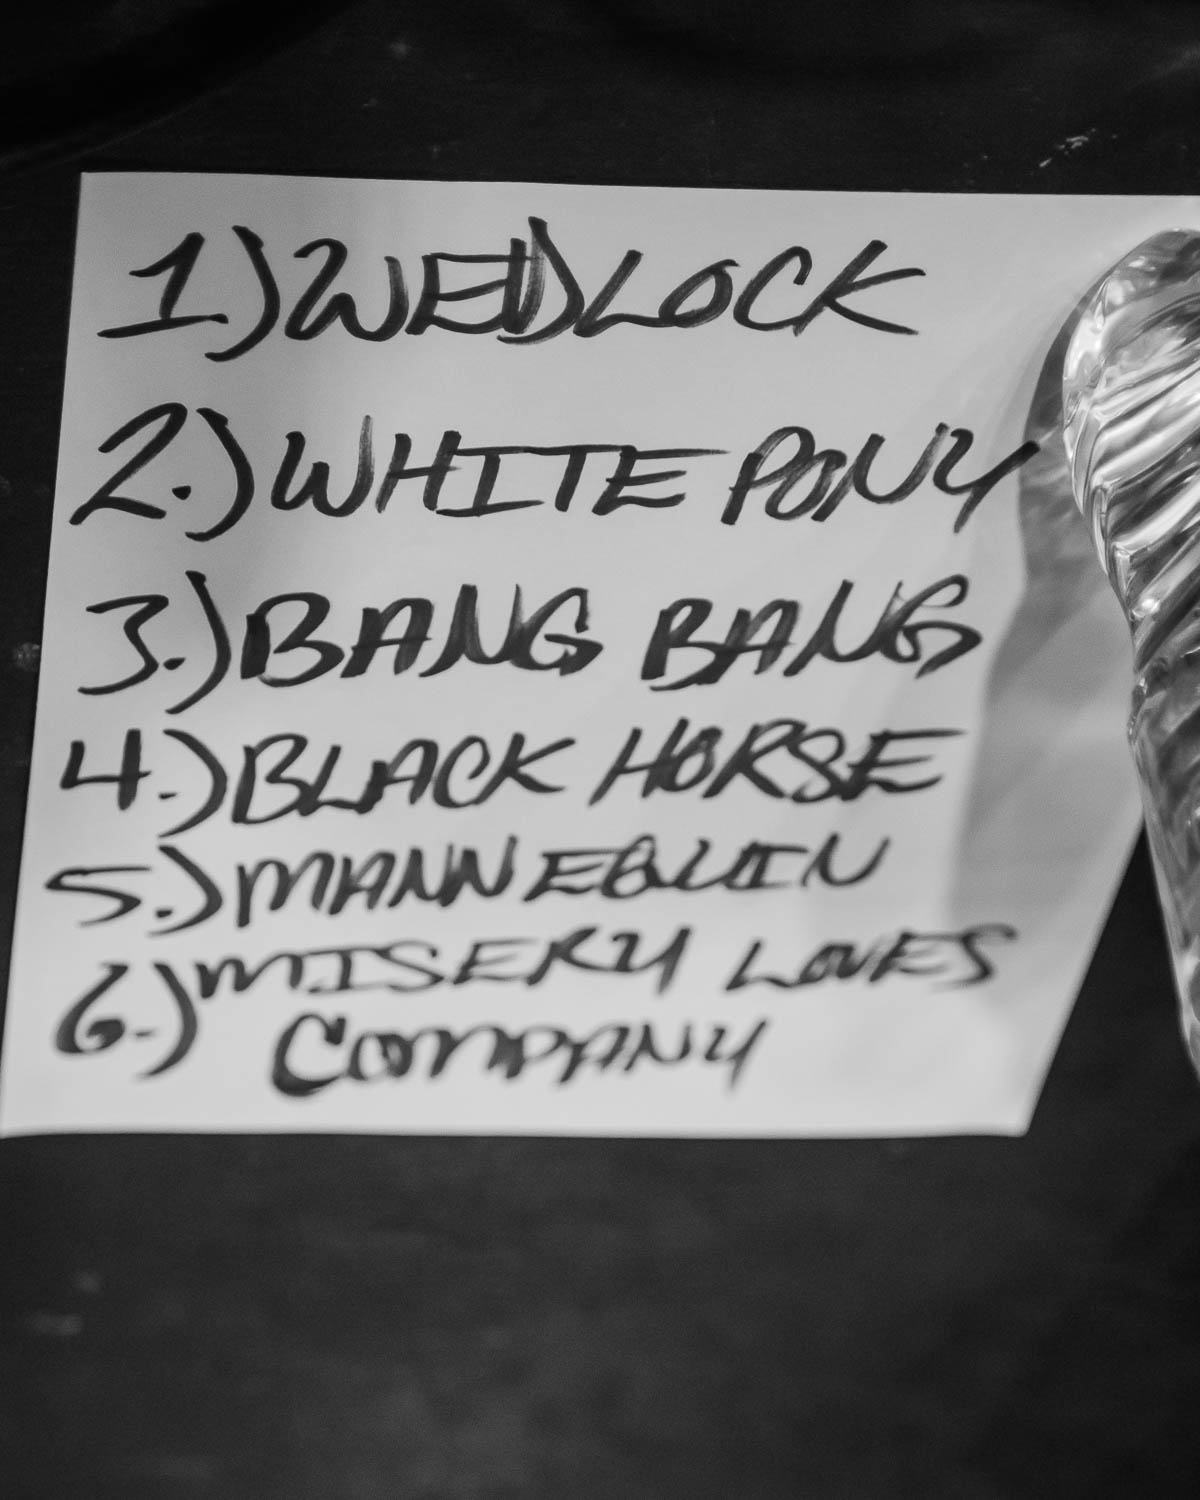 1.) WEDLOCK
2.) WHITE PONY
3.) BANG BANG
4.) BLACK HORSE
5.) MANNEQUIN
6.) MISERY LOVES
COMPANY